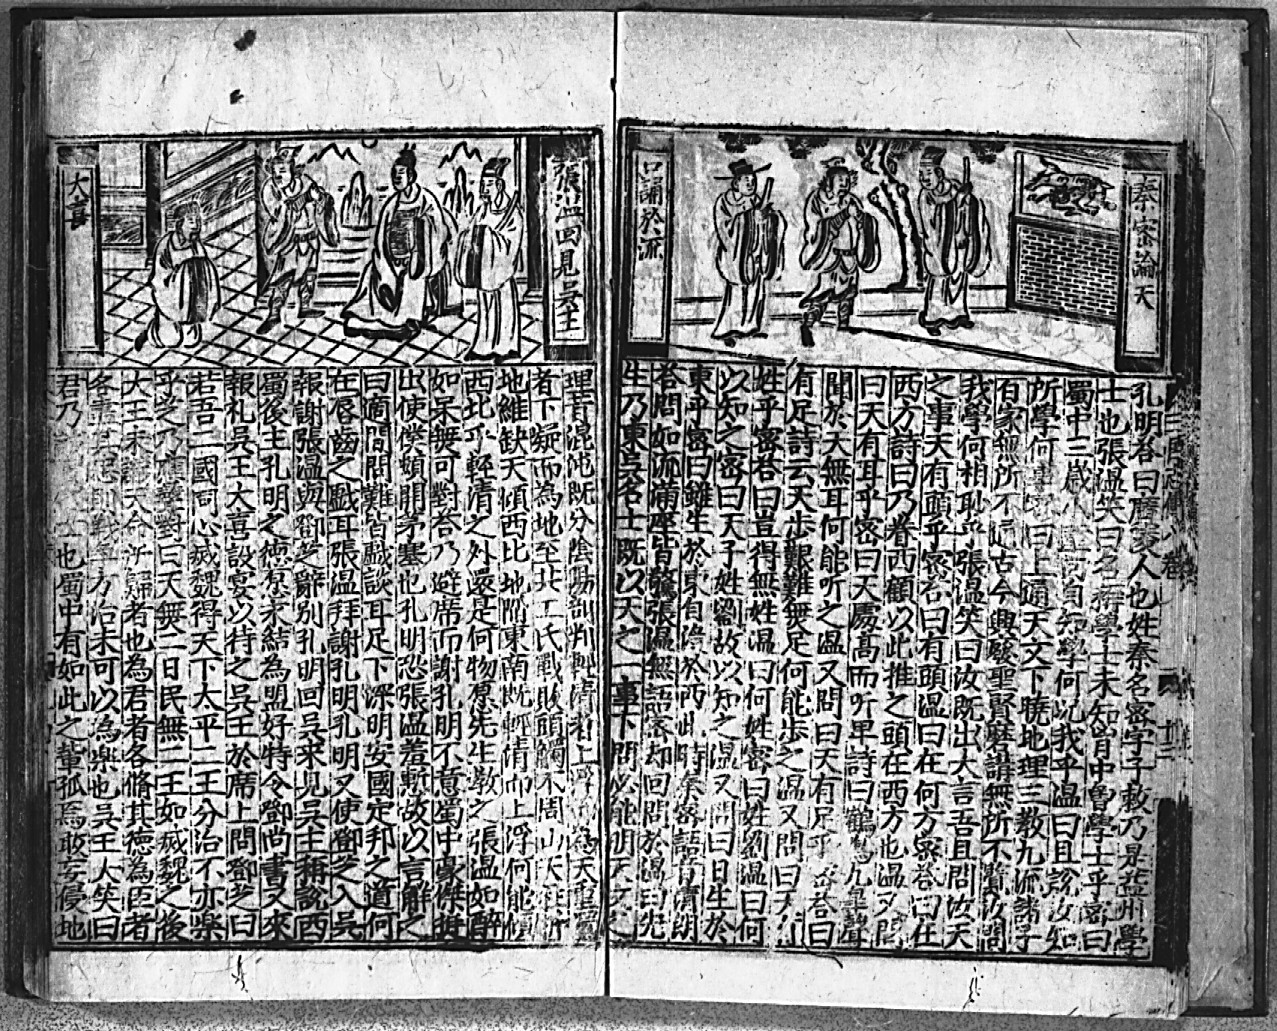 秦宓論天
口誦於流
孔明答曰廣漢人也姓秦名宓字子敕乃是益州學
士也張溫笑曰名稱學士未知胷中曾學士乎宓曰
蜀中三歲小童尚自知學何况我乎溫曰且說汝知
所學何事宓曰上通天文下曉地理三教九流諸子
百家無所不通古今興廢聖賢磨講無所不覽汝問
我學何相耻乎張溫笑曰汝既出大言吾且問汝天
之事天有頭乎宓答曰有頭溫曰在何方宓答曰在
西方詩曰乃眷西顧以此推之頭在西方也溫又問
曰天有耳乎宓曰天處高而听卑詩曰鶴鳴九皐聲
聞於天無耳何能听之溫又問曰天有足乎宓答曰
有足詩云天步艱難無足何能步之溫又問曰天有
姓乎宓答曰豈得無姓溫曰何姓宓曰姓劉溫曰何
以知之宓曰天子姓劉故以知之溫又問曰日生於
東乎宓曰雖生於東自落於西此時秦宓語言清朗
答問如流滿座皆驚張溫無語宓却回問於溫曰先
生乃東吳名士既以天之一事下問必能明天文之
張溫回見吳王
大喜
理昔混沌既分陰陽剖判輕清者上浮而為天重濁
者下凝而為地至共工氏戰敗頭觸不周山天柱折
地維缺天傾西北地陷東南既輕清而上浮何能傾
西北乎輕清之外還是何物愿先生敎之張溫如醉
如呆無可對答乃避席而謝孔明不意蜀中豪傑挺
出使僕頓開茅塞也孔明恐張溫羞慙故以言解之
曰適間問難皆戱談耳足下深明安國定邦之道何
在唇齒之戱耳張溫拜謝孔明孔明又使鄧芝入吳
報謝張溫與鄧芝辭別孔明回吳來見吳主稱說西
蜀後主孔明之德愿求結為盟好特令鄧尚書又來
報礼吳王大喜設宴以待之吳王於席上問鄧芝曰
若吾二國同心滅魏得天下太平二王分治不亦樂
乎芝乃應聲對曰天無二日民無二王如滅魏之後
大王未識天命所歸者也為君者各脩其德為臣者
各盡其忠則戰爭方治未可以為樂也吳王大笑曰
君乃 也蜀中有如此之輩孤焉敢妄侵地